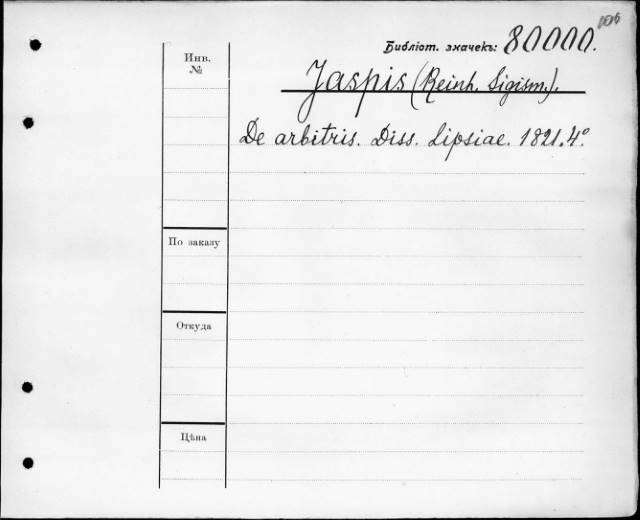 106
Библіот. значекъ: 80000.
Инв.
№
Jaspis (Reinh. Sigism.).
De arbitris. Diss. Lipsiae. 1821. 4°.
По заказу
Откуда
Цѣна